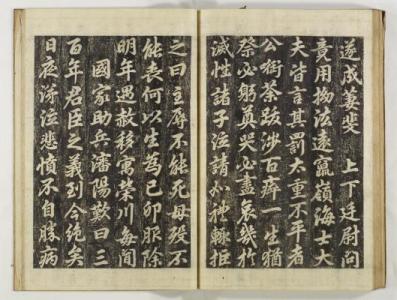 遂成萋斐 上下廷尉問
竟用拗法遠竄嶺海士大
夫皆言其罰太重不平者
公銜荼跋涉百痺一生猶
祭必躬奠哭必盡哀幾於
滅性諸子泣請輒拒
之曰主辱不能死母歿不
能喪何以生為己卯服除
明年遇赦移寓榮川每聞
國家助兵瀋陽歎曰三
百年君臣之義到今絕矣
日夜涕泣悲憤不自勝病